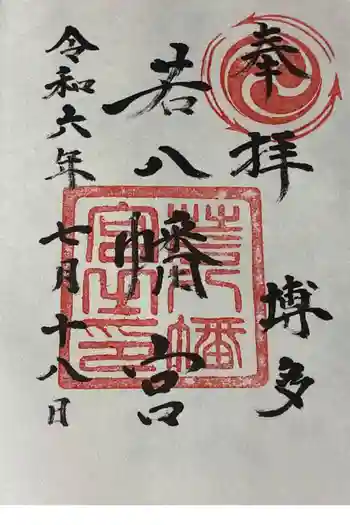 奉拝
博多
若八幡宮
令和六年七月十八日
若八幡宮之印